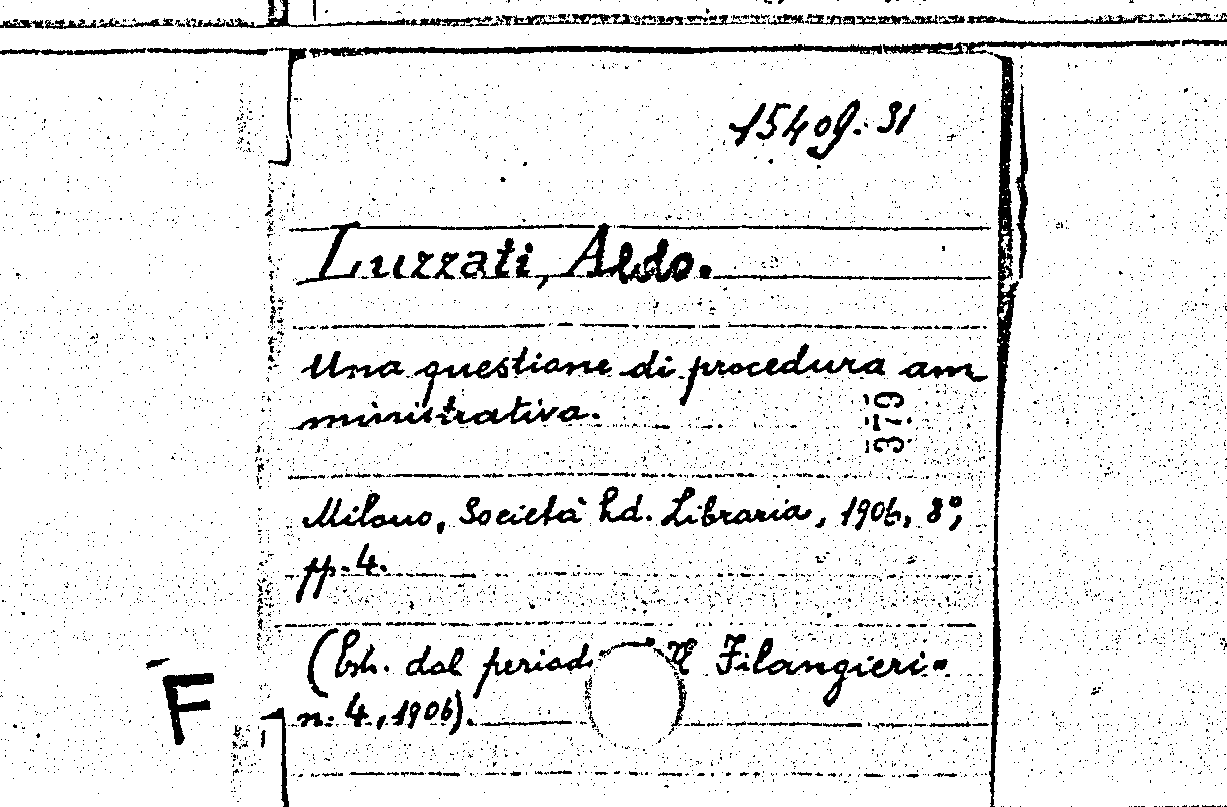 15409.31
Luzzati, Aldo.
Una questione di procedura am
ministrativa.
379
Milano, Società Ed. Libraria, 1906, 8°,
pp. 4.
(Estr. dal period. "Il Filangieri"
n. 4, 1906).
F